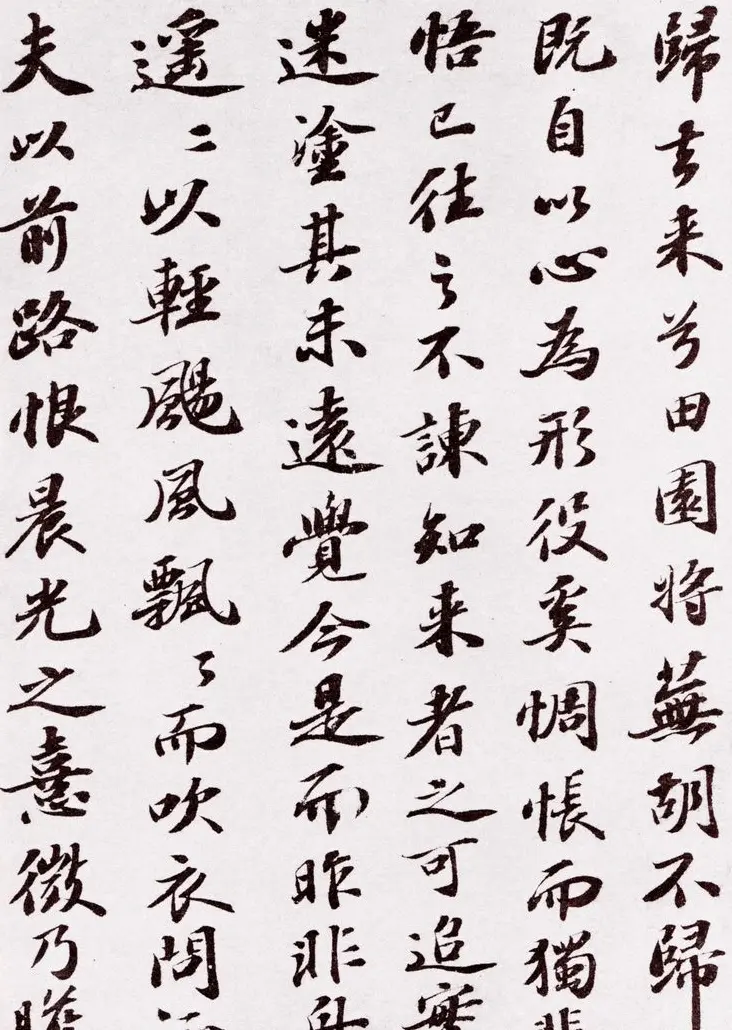 歸去来兮田園將蕪胡不歸
既自以心為形役奚惆悵而獨悲
悟已往之不諫知来者之可追實
迷塗其未遠覺今是而昨非舟
遥〻以輕颺風飄〻而吹衣問征
夫以前路恨晨光之憙微乃瞻